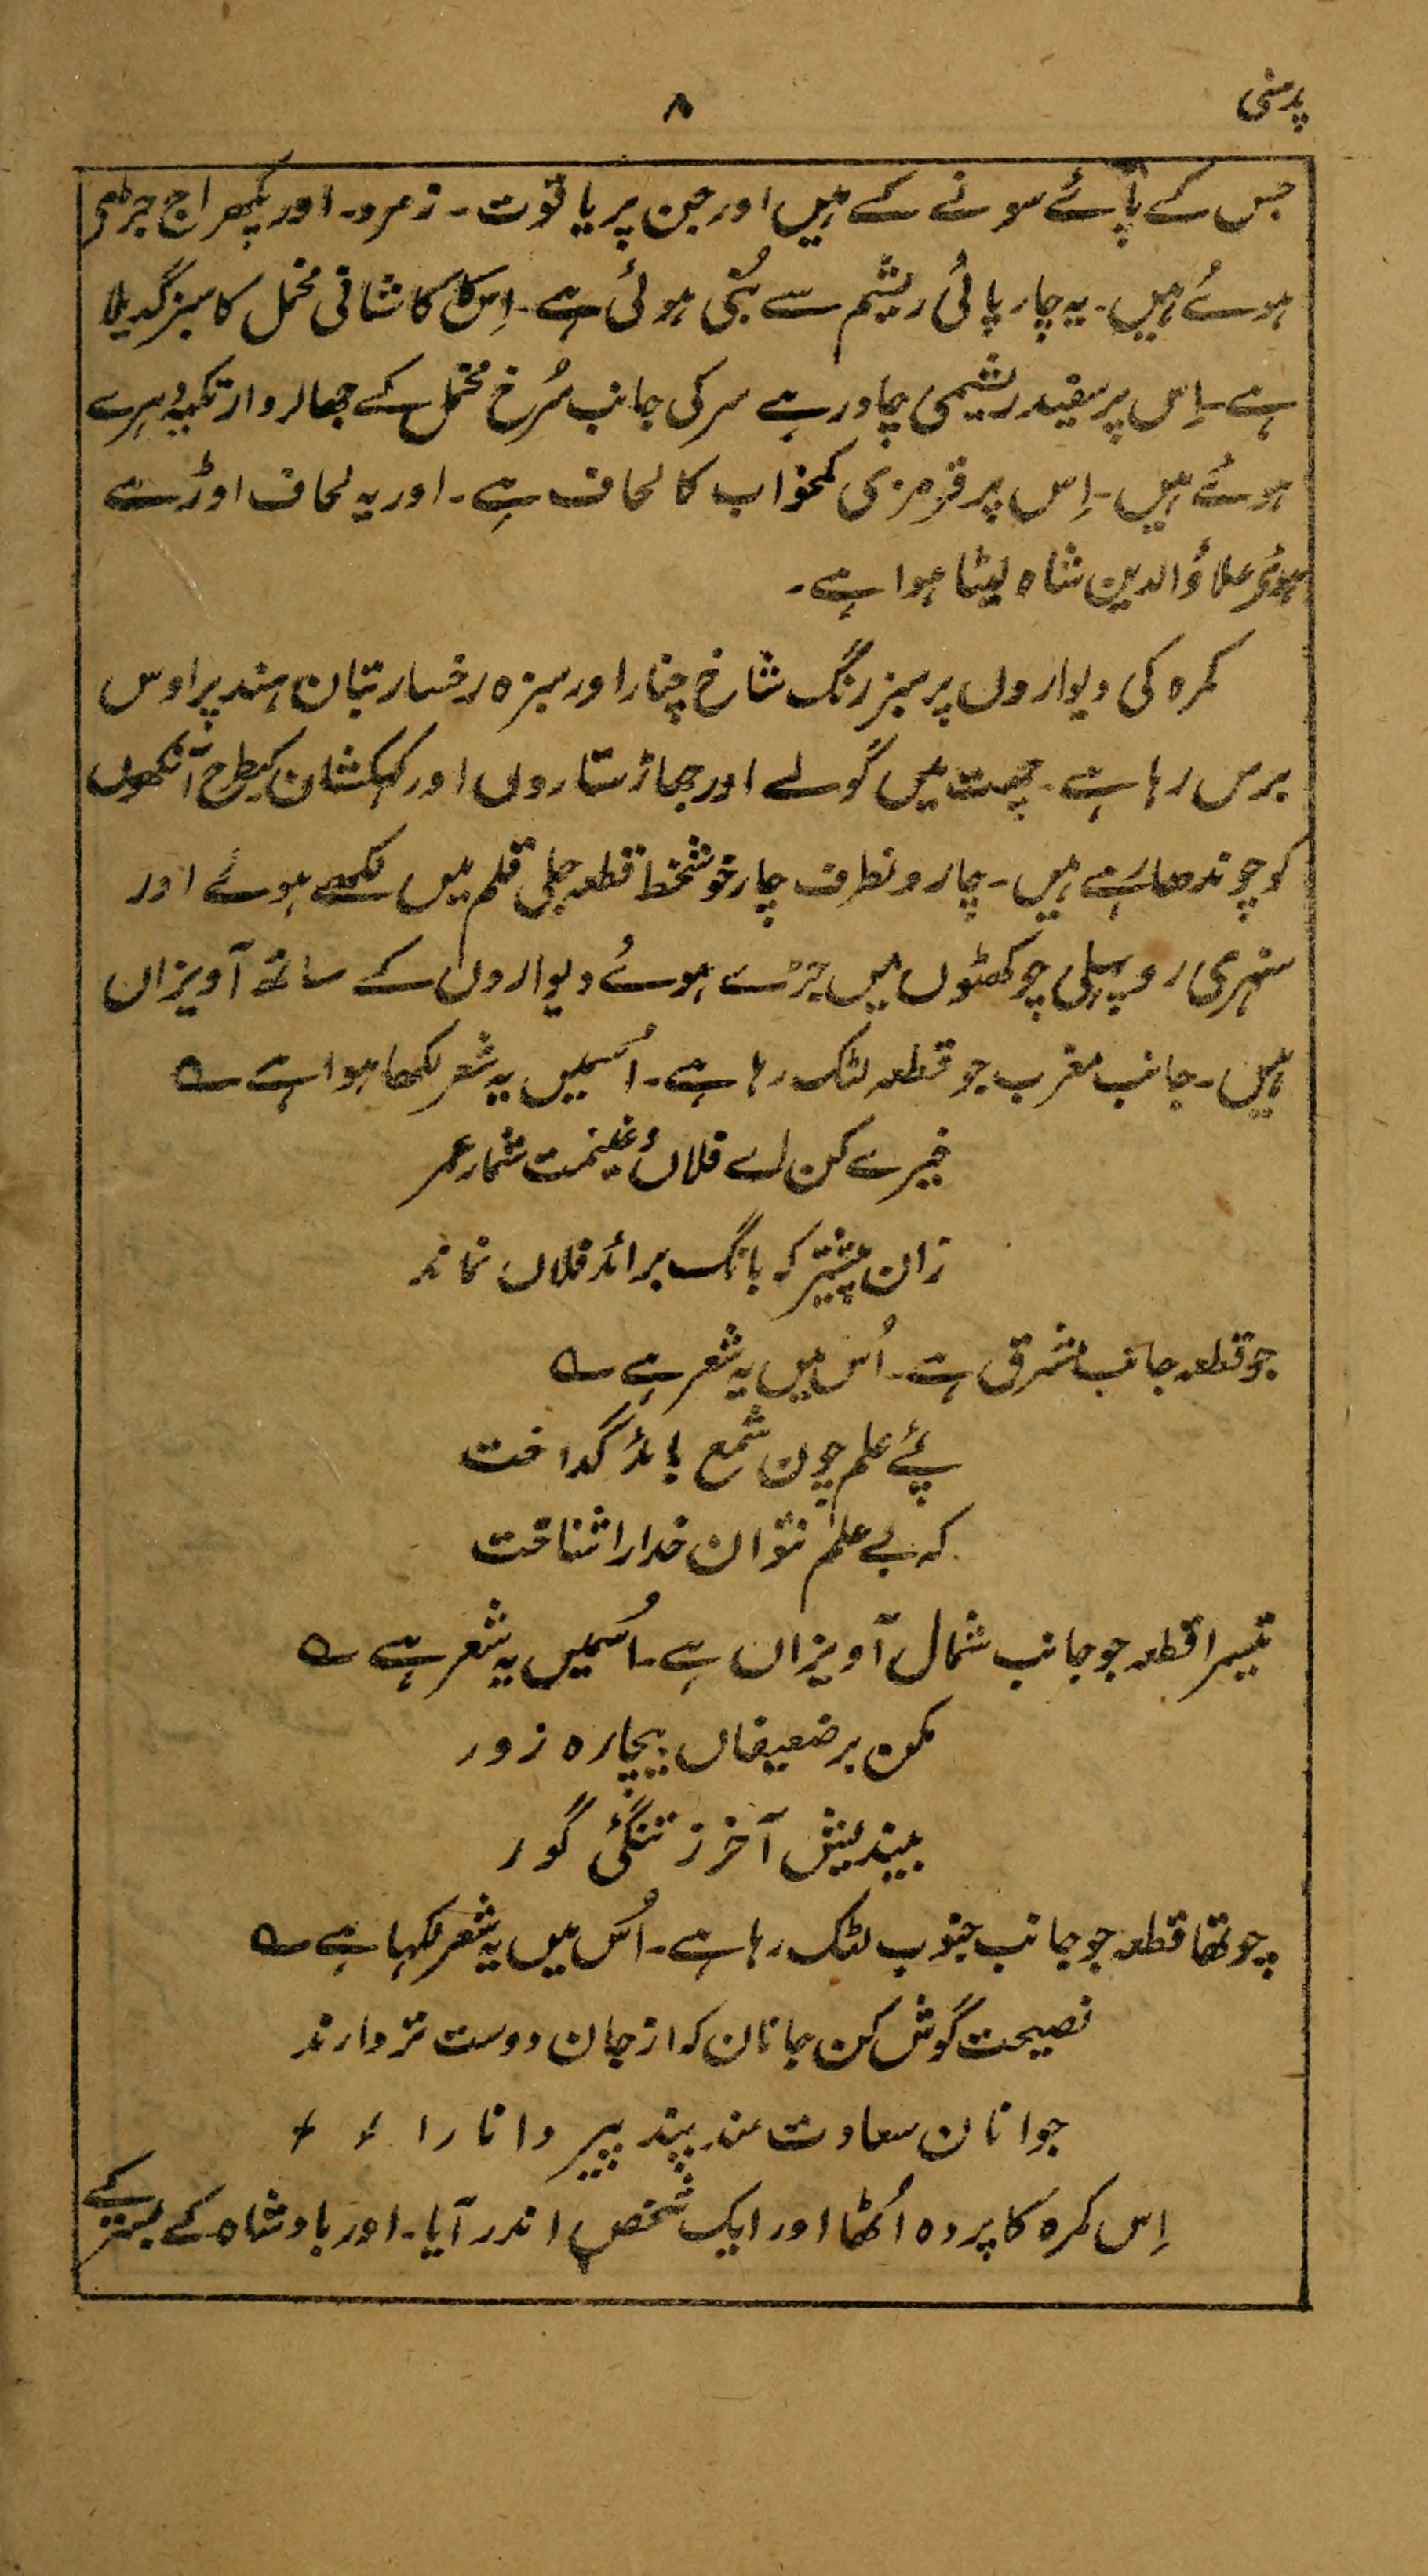 پدمنی
۸
جس کے پائے سونے کے ہیں اور جن پر یاقوت ۔ زمرد ۔ اور پکھراج جڑے
ہوئے ہیں ۔ یہ چارپائی ریشم سے بُنی ہوئی ہے ۔ اِس کا کاشانی مخمل کا سبز گدیلا
ہے ۔ اِس پر سفید ریشمی چادر ہے سر کی جانب سُرخ مخمل کے جھالردار تکیہ دہرے
ہوئے ہیں ۔ اِس پر قرمزی کمخواب کا لحاف ہے ۔ اور یہ لحاف اوڑھے
ہوئے علاؤالدین شاہ لیٹا ہوا ہے ۔
کمرہ کی دیواروں پر سبز رنگ شاخ چنار اور سبزہ رخسار بتان ہند پر اوس
برس رہا ہے ۔ چھت میں گولے اور جھاڑ ستاروں اور کہکشان کیطرح آنکھوں
کو چوندھا رہے ہیں ۔ چارونطرف چار خوشخط قطعہ جلی قلم میں لکھے ہوئے اور
سنہری روپہلی چوکھٹوں میں جڑے ہوئے دیواروں کے ساتھ آویزاں
ہیں ۔ جانب مغرب جو قطعہ لٹک رہا ہے ۔ اُسمیں یہ شعر لکھا ہوا ہے ؎
خیرے کن اے فلاں و غنیمت شمار عمر
زان پیشتر کہ بانگ برائد فلاں نماند
جو قطعہ جانب مشرق ہے ۔ اُس میں یہ شعر ہے ؎
پئے علم چون شمع بائد گداخت
کہ بے علم نتوان خدارا شناخت
تیسرا قطعہ جو جانب شمال آویزاں ہے ۔ اُسمیں یہ شعر ہے ؎
مکن بر ضعیفاں بیچارہ زور
بیندیش آخر ز تنگئی گور
چوتھا قطعہ جو جانب جنوب لٹک رہا ہے ۔ اُس میں یہ شعر لکہا ہے ؎
نصیحت گوش کن جانان کہ از جان دوست تر دارند
جوانان سعادت مند پند پیر دانا را
اِس کمرہ کا پردہ اُٹھا اور ایک شخص اندر آیا ۔ اور بادشاہ کے بستر کے